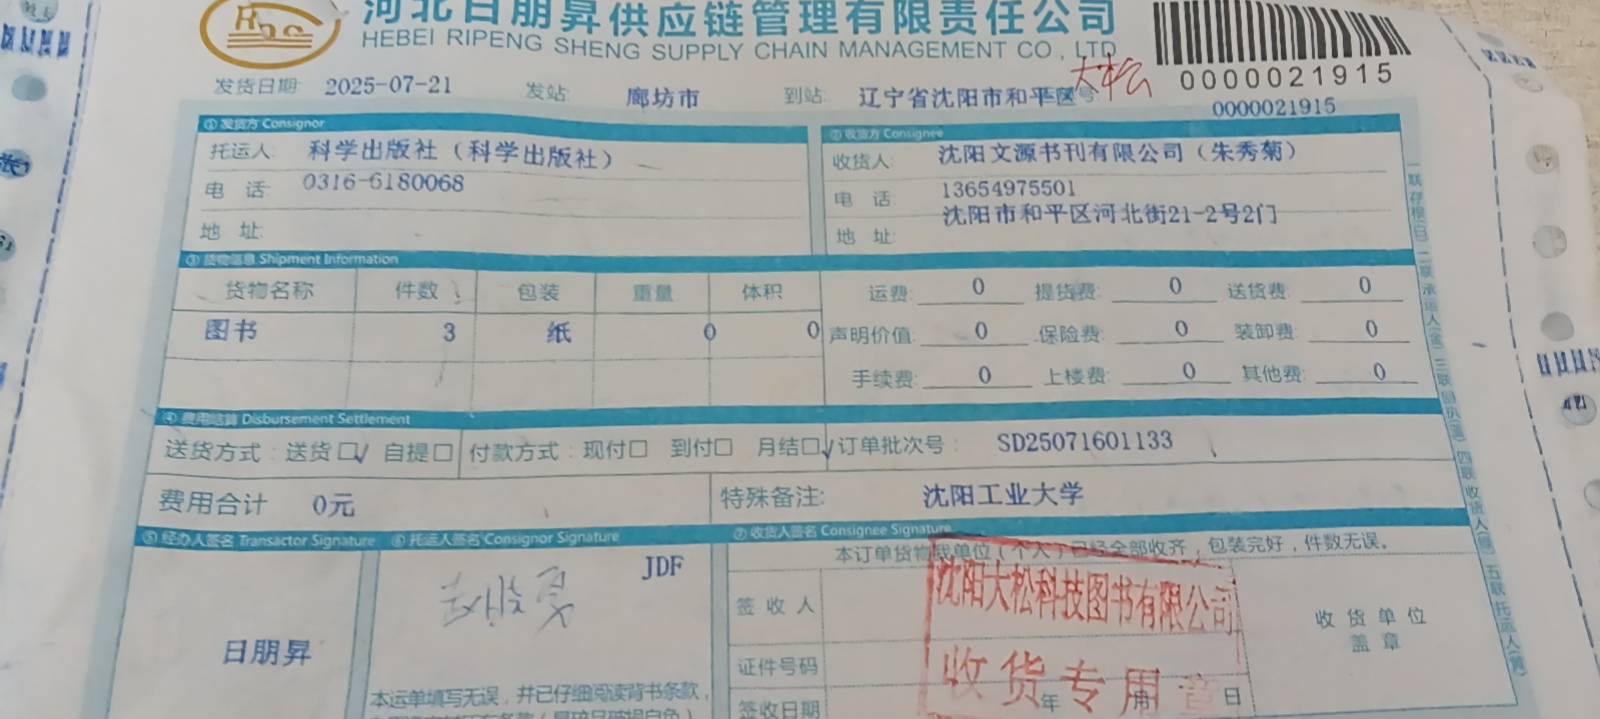 河北日朋昇供应链管理有限责任公司
HEBEI RIPENG SHENG SUPPLY CHAIN MANAGEMENT CO., LTD
大松
0000021915
发货日期: 2025-07-21 发站: 廊坊市 到站: 辽宁省沈阳市和平区 号: 0000021915
① 发货方 Consignor
② 收货方 Consignee
托运人: 科学出版社（科学出版社）
收货人: 沈阳文源书刊有限公司（朱秀菊）
电 话: 0316-6180068
电 话: 13654975501
地 址:
地 址: 沈阳市和平区河北街21-2号2门
③ 货物信息 Shipment Information
货物名称 件数 包装 重量 体积
运费: 0 提货费: 0 送货费: 0
图书 3 纸 0 0
声明价值: 0 保险费: 0 装卸费: 0
手续费: 0 上楼费: 0 其他费: 0
④ 费用结算 Disbursement Settlement
送货方式: 送货□√ 自提□ 付款方式: 现付□ 到付□ 月结□√ 订单批次号: SD25071601133
费用合计 0元 特殊备注: 沈阳工业大学
⑤ 经办人签名 Transactor Signature
⑥ 托运人签名 Consignor Signature
⑦ 收货人签名 Consignee Signature
日朋昇
JDF
本运单填写无误，并已仔细阅读背书条款，
本订单货物我单位（个人）已经全部收齐，包装完好，件数无误。
签 收 人
证件号码
签收日期 年 月 日
收 货 单 位
盖 章
沈阳大松科技图书有限公司
收货专用章
一联存根(白) 二联承运人(金) 三联回执(蓝) 四联收货人(绿) 五联托运人(黄)